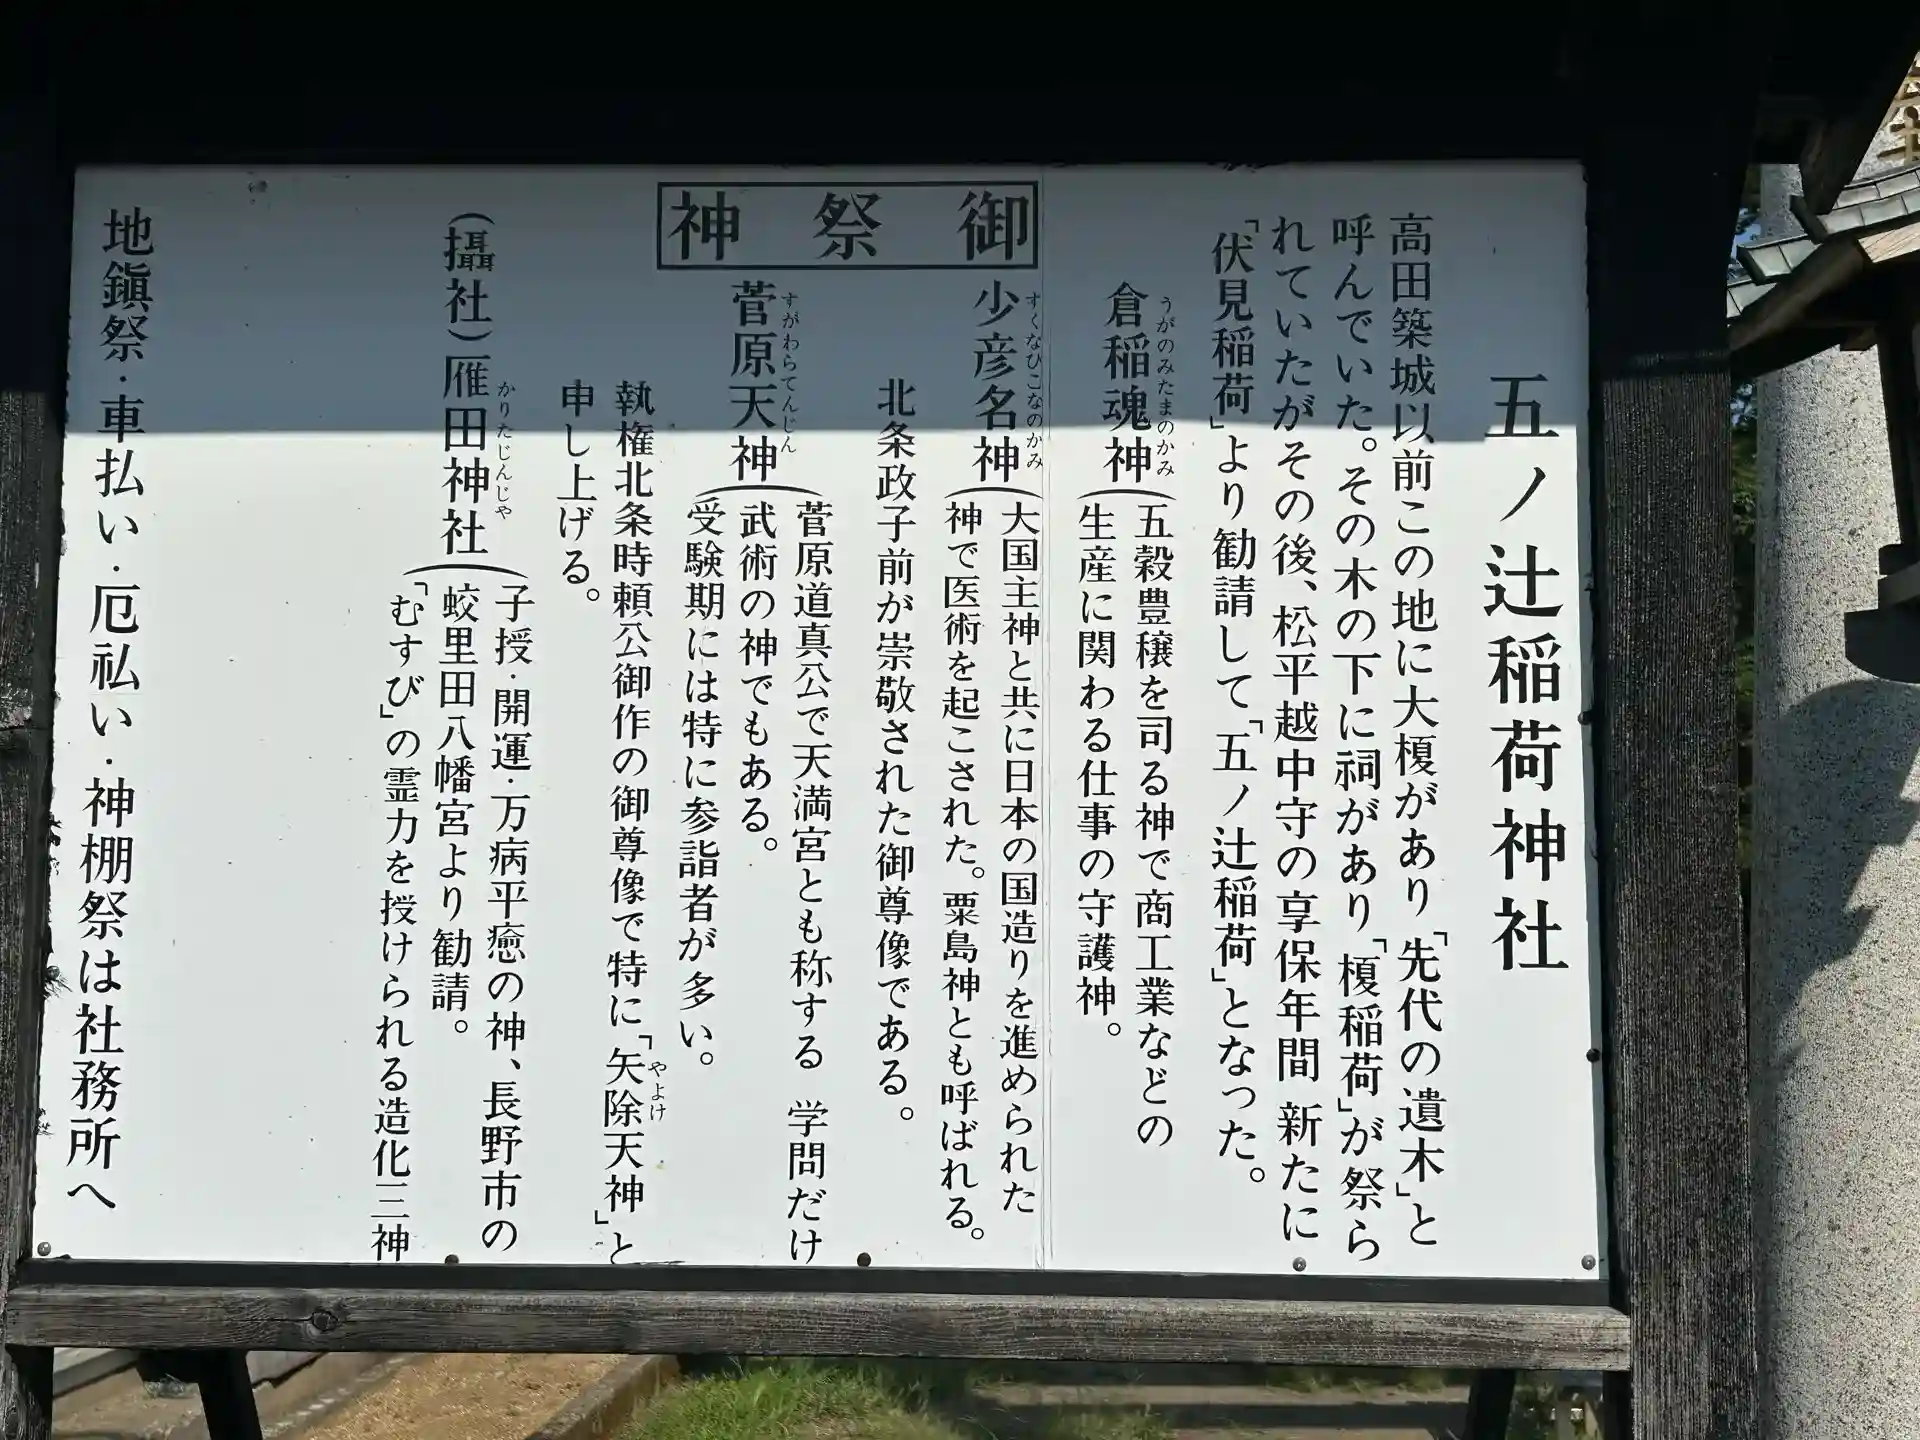 五ノ辻稲荷神社
高田築城以前この地に大榎があり「先代の遺木」と
呼んでいた。その木の下に祠があり「榎稲荷」が祭ら
れていたがその後、松平越中守の享保年間 新たに
「伏見稲荷」より勧請して「五ノ辻稲荷」となった。
御祭神
うがのみたまのかみ
倉稲魂神
五穀豊穣を司る神で商工業などの
生産に関わる仕事の守護神。
すくなひこなのかみ
少彦名神
大国主神と共に日本の国造りを進められた
神で医術を起こされた。粟島神とも呼ばれる。
北条政子前が崇敬された御尊像である。
すがわらてんじん
菅原天神
菅原道真公で天満宮とも称する 学問だけ
武術の神でもある。
受験期には特に参詣者が多い。
やよけ
執権北条時頼公御作の御尊像で特に「矢除天神」と
申し上げる。
かりたじんじゃ
(攝社)雁田神社
子授・開運・万病平癒の神、長野市の
蛟里田八幡宮より勧請。
「むすび」の霊力を授けられる造化三神
地鎭祭・車払い・厄払い・神棚祭は社務所へ